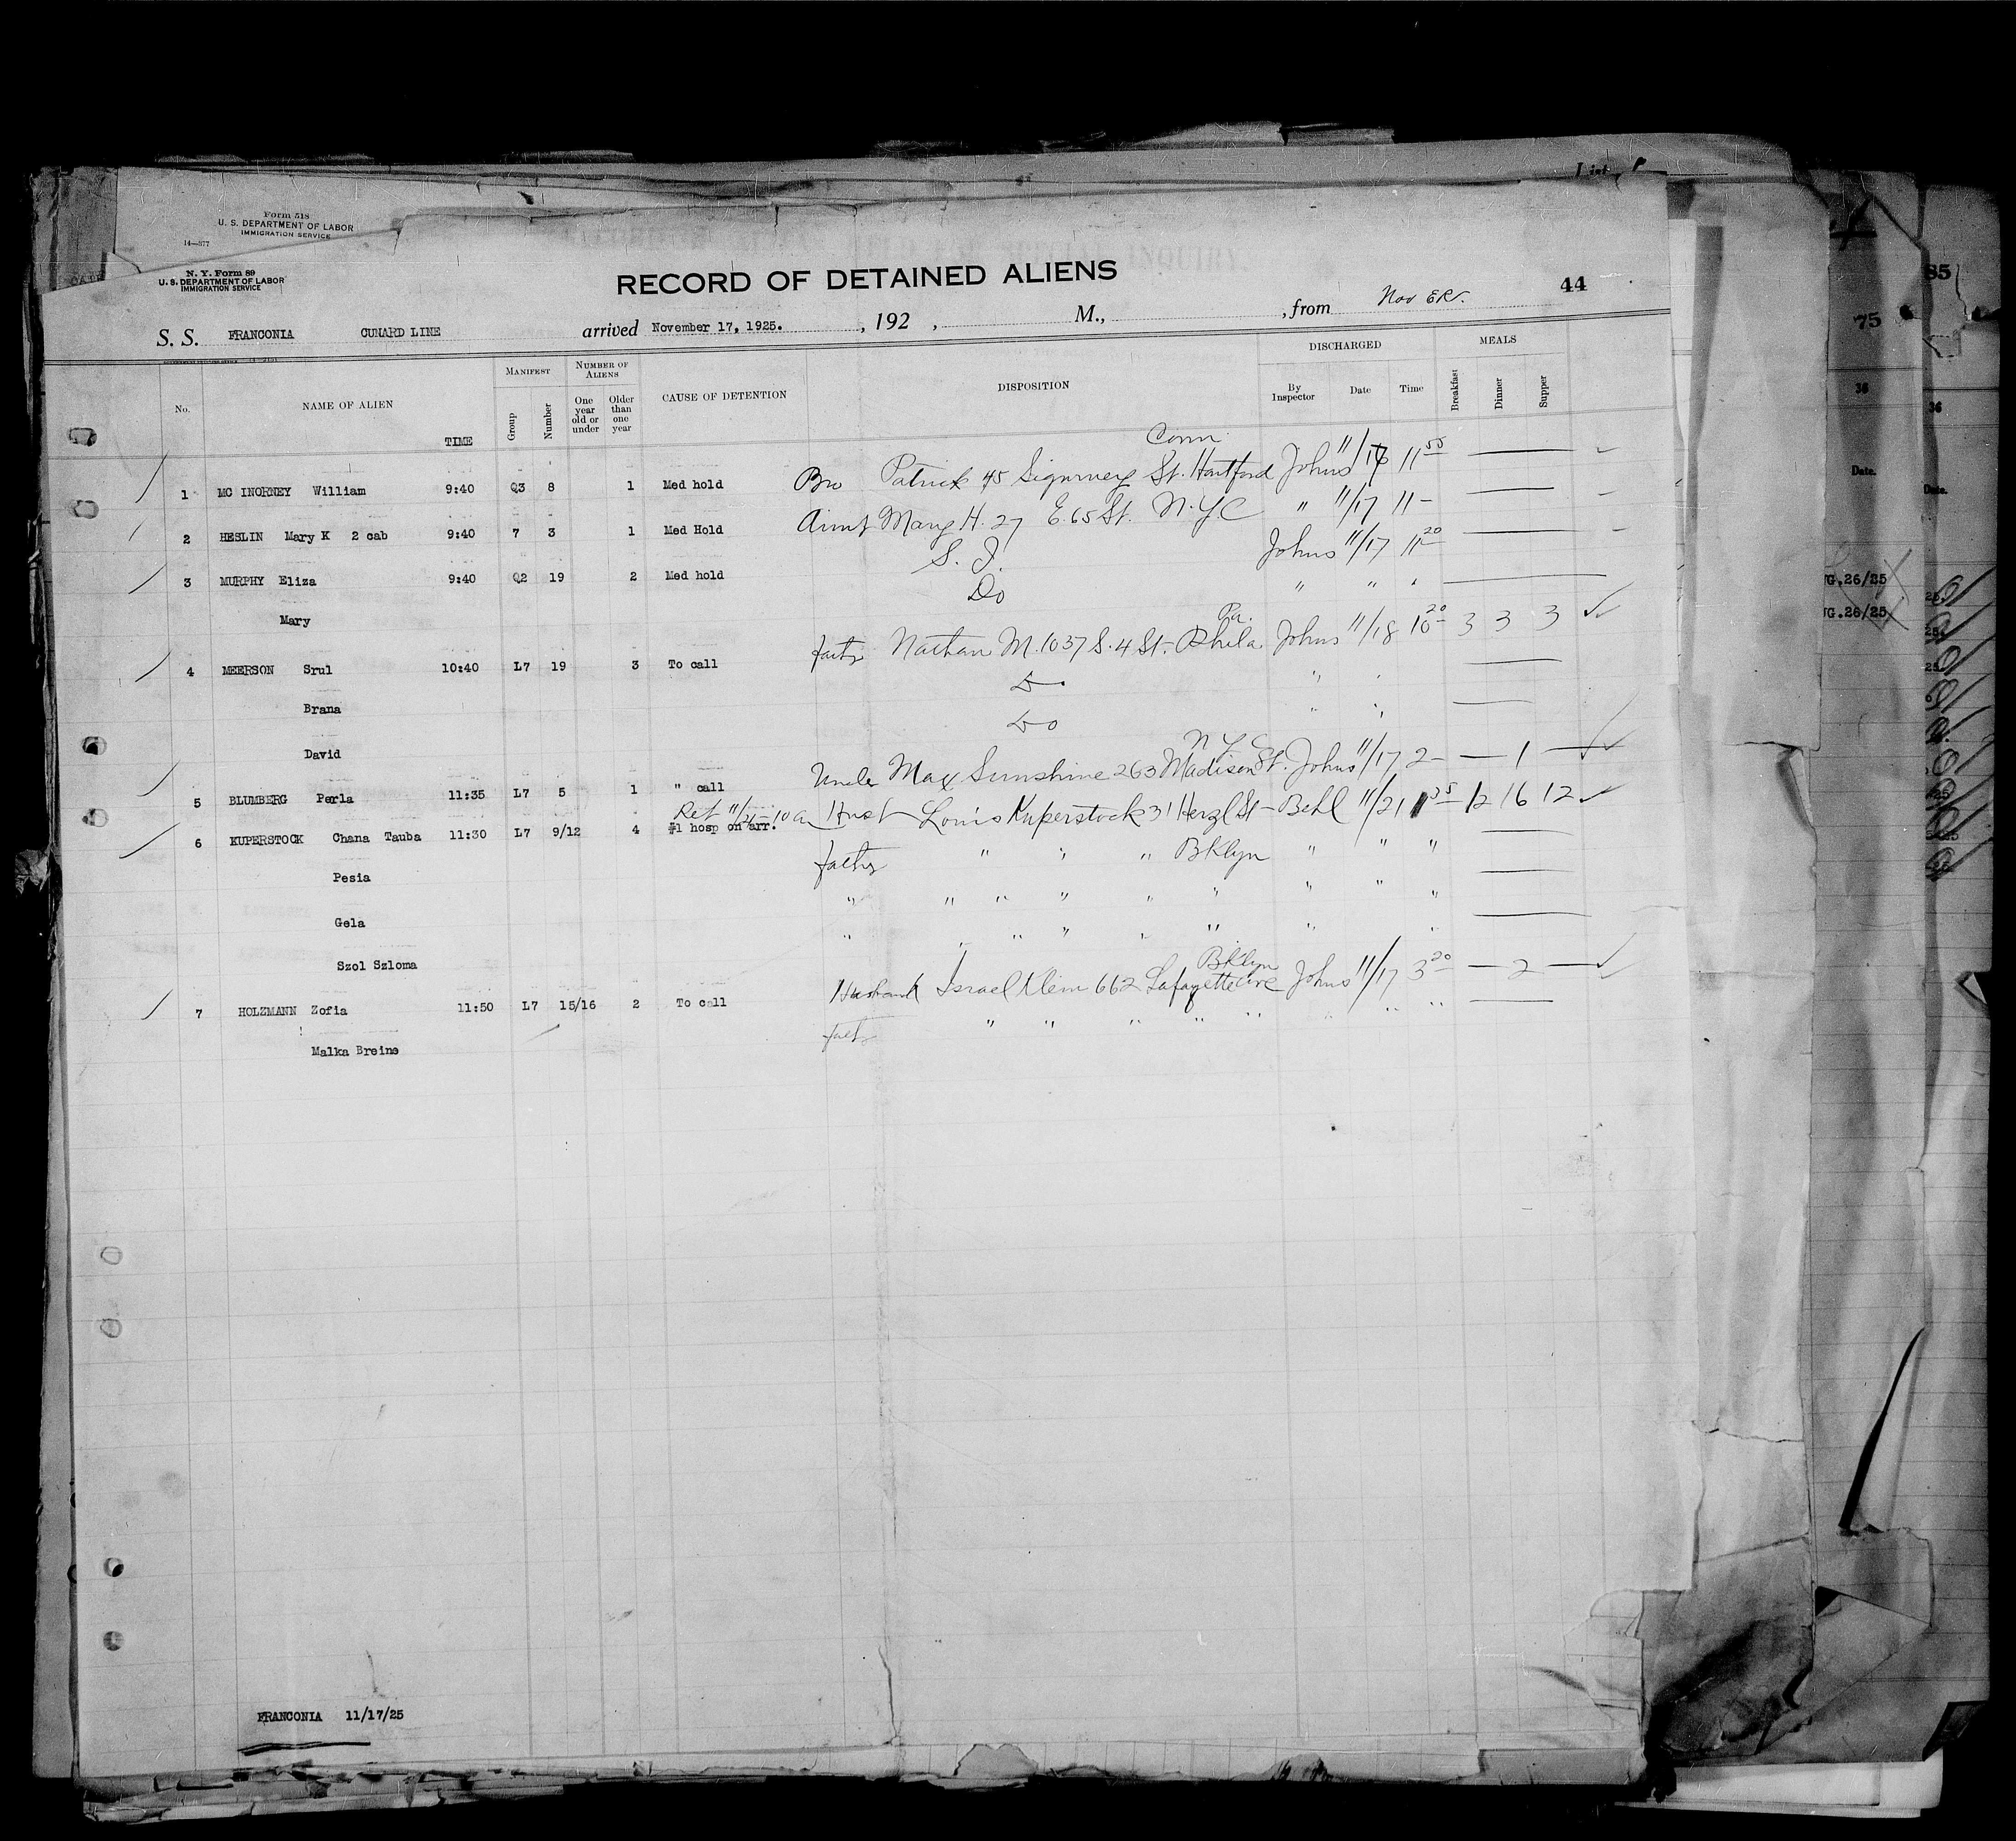 List
Form 518
U. S. DEPARTMENT OF LABOR
IMMIGRATION SERVICE
14—877
N. Y. Form 89
U. S. DEPARTMENT OF LABOR
IMMIGRATION SERVICE
RECORD OF DETAINED ALIENS
44
S. S. FRANCONIA CUNARD LINE arrived November 17, 1925. , 192 , M., , from Nov
No. NAME OF ALIEN TIME MANIFEST Group Number NUMBER OF ALIENS One year old or under Older than one year CAUSE OF DETENTION DISPOSITION DISCHARGED By Inspector Date Time MEALS Breakfast Dinner Supper
Conn
1 MC INORNEY William 9:40 Q3 8 1 Med hold Bro Patrick 45 Sigurney St. Hartford Johns 11/17 11 55
2 HESLIN Mary K 2 cab 9:40 7 3 1 Med Hold Aunt Mary H. 27 E. 65 St. N.Y.C " 11/17 11 —
3 MURPHY Eliza 9:40 Q2 19 2 Med hold S. I. Johns 11/17 11 20
Mary Do " " "
Pa.
4 MEERSON Srul 10:40 L7 19 3 To call father Nathan M. 1037 S. 4 St. Phila Johns 11/18 10 20 3 3 3
Brana Do " "
David Do " "
N Y C
5 BLUMBERG Perla 11:35 L7 5 1 " call Uncle Max Sunshine 263 Madison St. Johns 11/17 2 — — 1 —
Ret 11/21 - 10 a
6 KUPERSTOCK Chana Tauba 11:30 L7 9/12 4 #1 hosp on arr. Husb Louis Kuperstock 31 Herzl St Behl 11/21 1 35 12 16 12
Pesia father " " " Bklyn " " "
Gela " " " " " " " " "
Szol Szloma " " " " " " " "
Bklyn
7 HOLZMANN Zofia 11:50 L7 15/16 2 To call Husband Israel Klein 662 Lafayette Ave Johns 11/17 3 20 — 2 —
Malka Breine fath " " " " " " " "
FRANCONIA 11/17/25
75
36
Date.
UG.26/25
UG.26/25
85
36
Date.